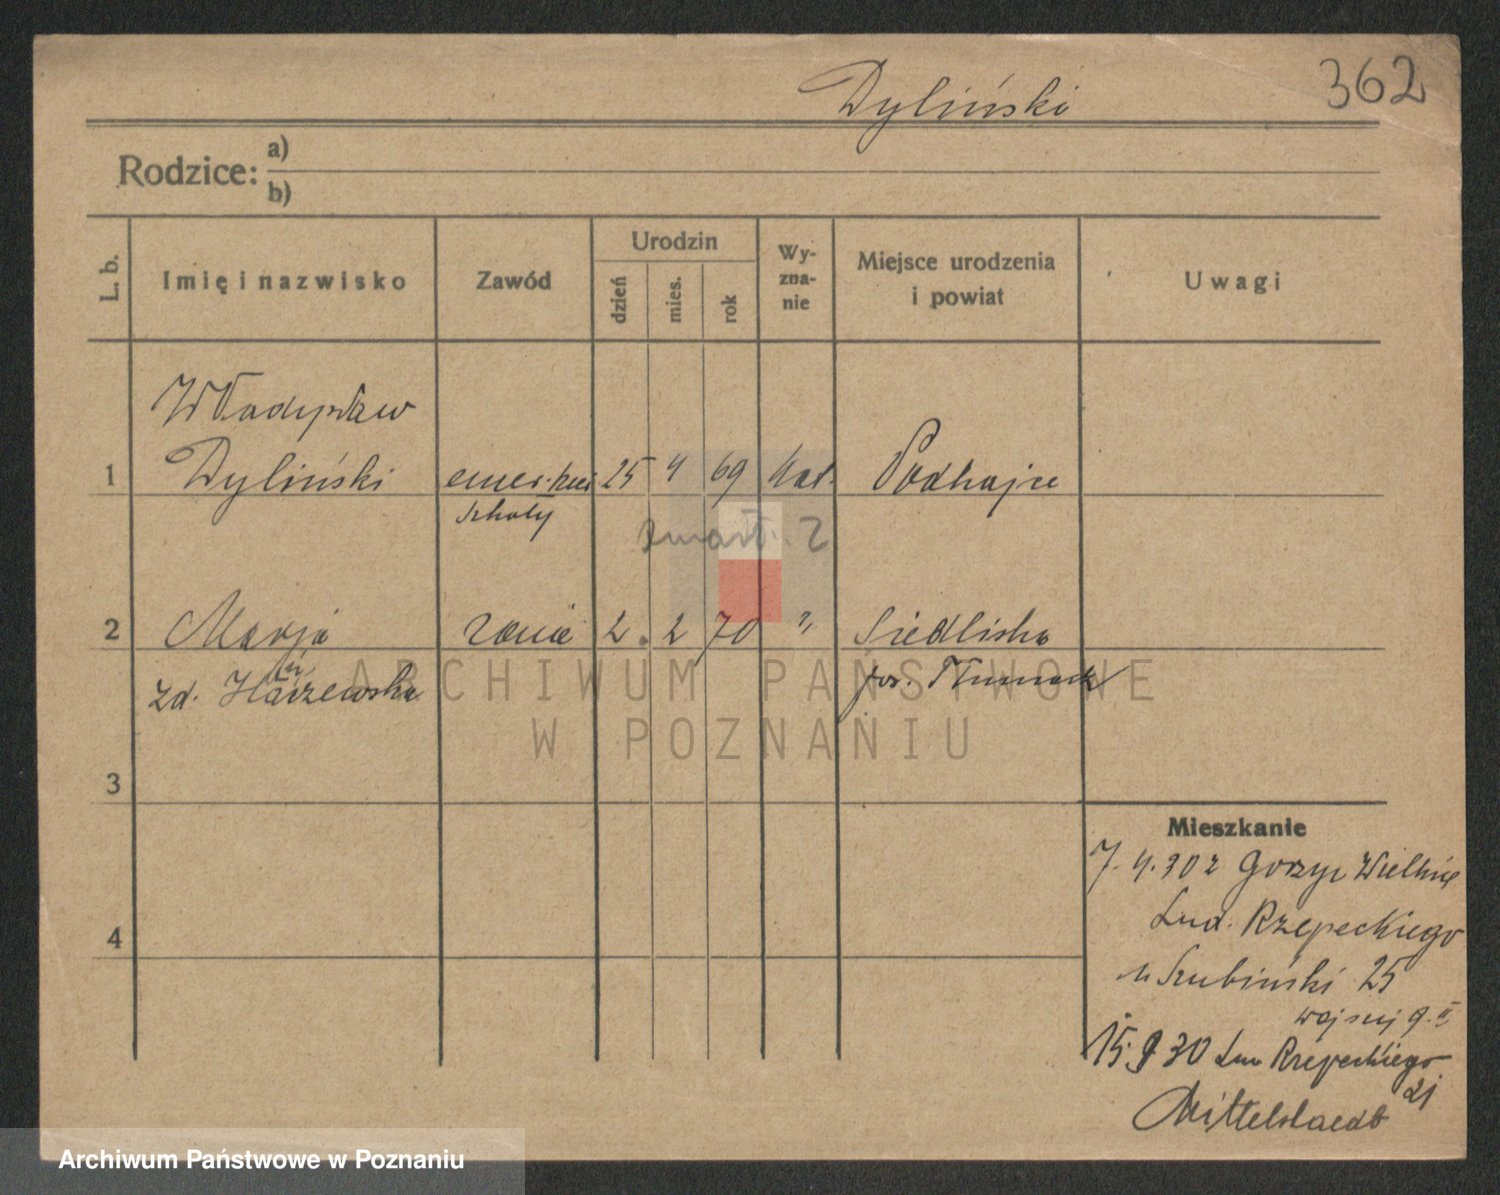 Dyliński
362
Rodzice:
a)
b)
L. b.
Imię i nazwisko
Zawód
Urodzin
dzień
mies.
rok
Wy-
zna-
nie
Miejsce urodzenia
i powiat
Uwagi
Władysław
1 Dyliński emer. 25 4 69 kat. Podhajce
szkoły
zmarł.
2 Marja żona 2. 2 70 " Siedliska
zd.
pow. Tłumacz
3
4
Mieszkanie
7.4.30 z Gorzyc Wielkie
Lud. Rzepeckiego
u Szubiński 25
15.9 30 Lud Rzepeckiego
21
Mittelstaedt
ARCHIWUM PAŃSTWOWE
W POZNANIU
Archiwum Państwowe w Poznaniu